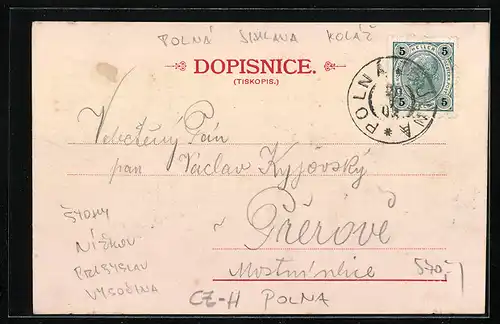 POLNÁ ŠIMLANA KOLÁŽ
DOPISNICE.
(TISKOPIS.)
5 5
5 5
POLNÁ * POLNA *
Velectěný Pán
pan Václav Kyjovský
v Přerově
Mostní ulice
ŠTOKY
NÍŽKOV
PŘIBYSLAV
VYSOČINA
CZ-H POLNA
570,-